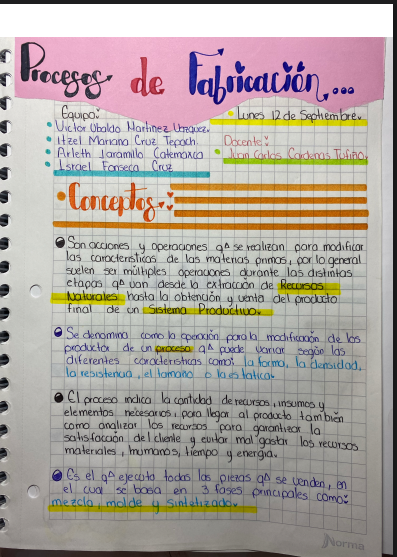 Procesos de Fabricación...
Equipo:
Lunes 12 de Septiembre.
Victor Ubaldo Martinez Vazquez.
Itzel Mariana Cruz Tepach.
Docente:
Arleth Jaramilo Catemaxca
Juan Carlos Cardenas Tufiño.
Israel Fonseca Cruz
Conceptos.
Son acciones y operaciones q^ se realizan para modificar
las caracteristicas de las materias primas, por lo general
suelen ser múltiples operaciones durante las distintas
etapas q^ van desde la extracción de Recursos
Naturales hasta la obtención y venta del producto
final de un Sistema Productivo.
Se denomina como la operación para la modificación de los
productor de un proceso q^ puede variar según las
diferentes caracteristicas como: la forma, la densidad,
la resistencia, el tamaño o la estatica.
El proceso indica la cantidad de recursos, insumos y
elementos necesarios, para llegar al producto también
como analizar los recursos para garantizar la
satisfacción del cliente y evitar mal gastar los recursos
materiales, humanos, tiempo y energía.
Es el q^ ejecuta todas las piezas q^ se venden, en
el cual se basa en 3 fases principales como:
mezcla, molde y sintetizado.
Norma